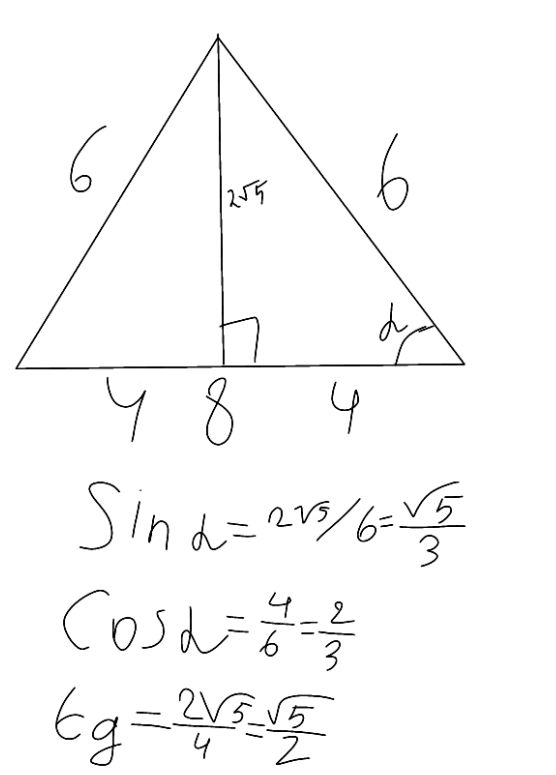 6
6
2√5
α
4 8 4
Sin α = 2√5/6 = √5/3
Cos α = 4/6 = 2/3
tg = 2√5/4 = √5/2